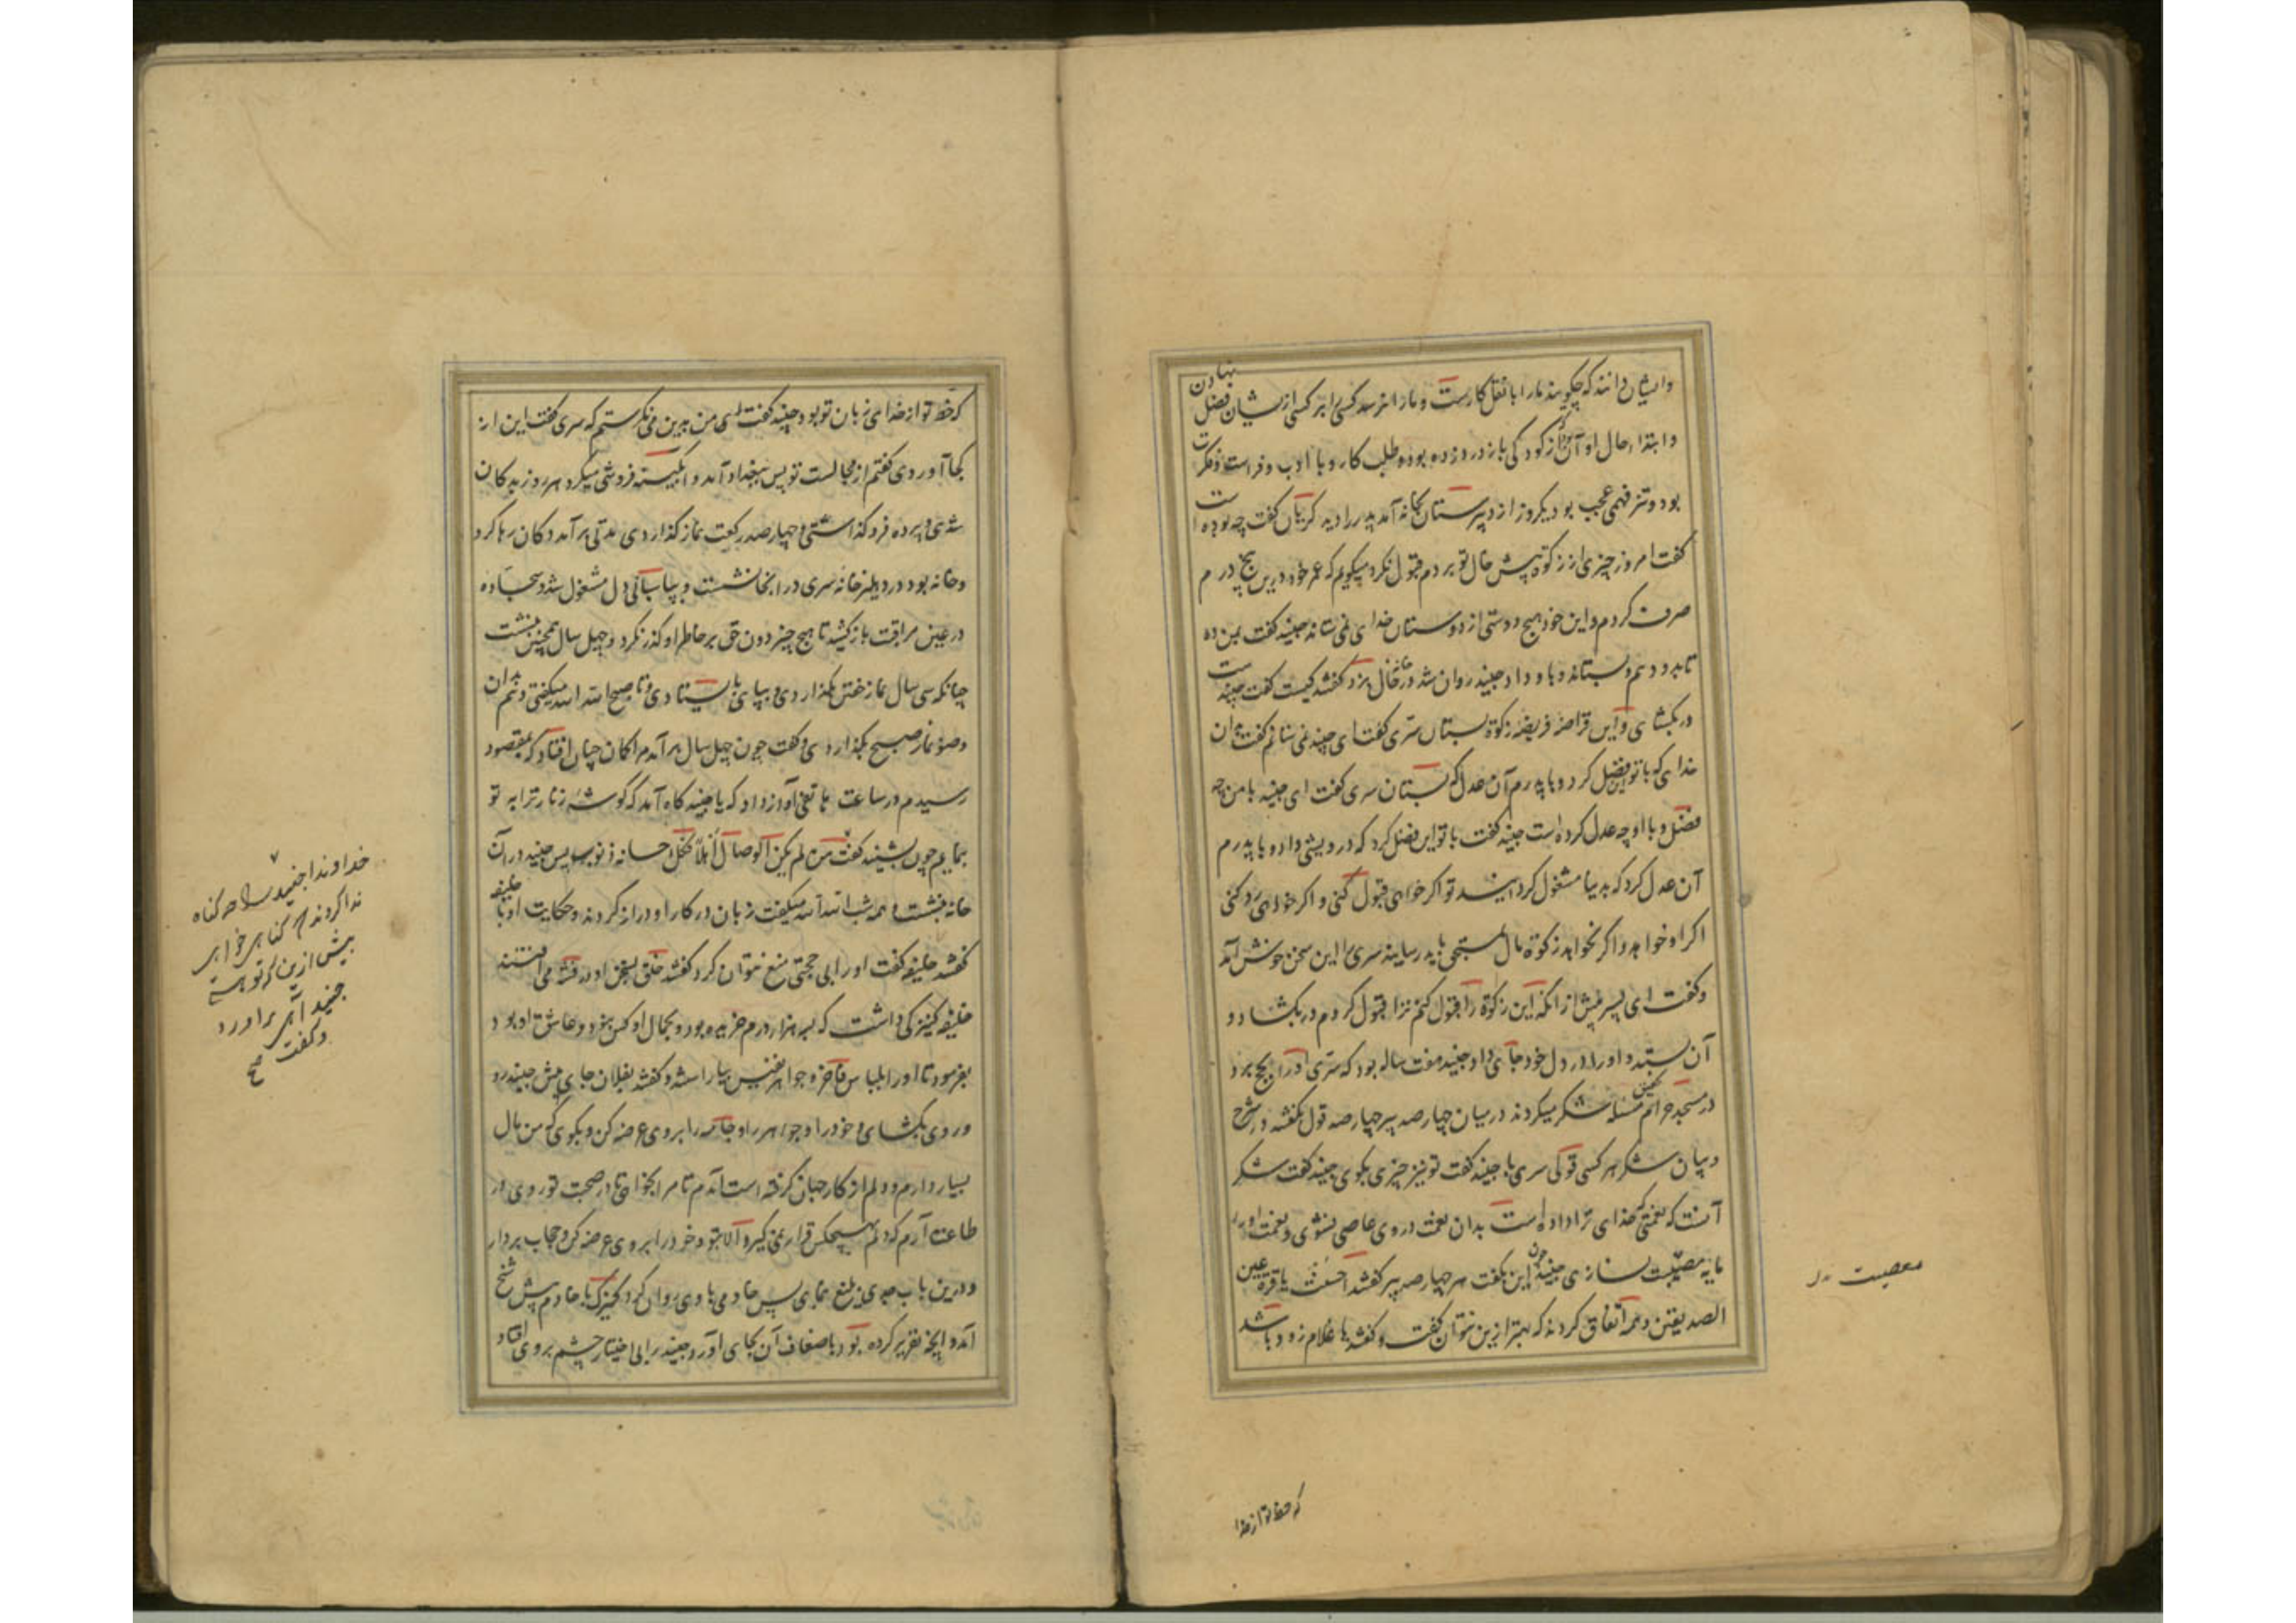 وایشان دانند که چگویند ما را با نقل کارست و ما را نرسد کسی را بر کسی ازیشان فضل نهادن
وابتداء حال او آن بود که از کودکی باز درد زده بوده و طلب کار و با ادب و فراست و فکرت
بود و تیز فهمی عجب بود یکروز از دبیرستان بخانه آمد پدر را دید گریان گفت چه بوده است
گفت امروز چیزی از زکوة پیش خال تو بردم قبول نکرد میگریم که عمر خود درین پنج درم
صرف کردم و این خود هیچ دوستی از دوستان خدای نمی شاند جنید گفت بمن ده
تا بدو دهم و بستاند و باو داد جنید روان شد و در خانه خال بزد گفتند کیست گفت جنیدست
در بکشای و این قراضه فریضه زکوة بستان سری گفت ای جنید نمی ستانم گفت بدان
خدای که با تو این فضل کرد و با پدرم آن عدل که بستان سری گفت ای جنید با من چه
فضل و با او چه عدل کرده است جنید گفت با تو این فضل کرد که درویشی داد و با پدرم
آن عدل کرد که بدنیا مشغول گردانید تو اگر خواهی قبول کنی و اگر خواهی رد کنی
اگر او خواهد و اگر نخواهد زکوة مال بمستحق باید رسانید سری را این سخن خوش آمد
و گفت ای پسر پیش از آنکه این زکوة را قبول کنم ترا قبول کردم در بکشاد و
آن بستد و او را در دل خود جای داد جنید هفت ساله بود که سری او را بحج برد
در مسجد حرام مسئله شکر میکردند در میان چهارصد پیر چهارصد قول بگفتند در شرح
و بیان شکر هر کسی قولی سری با جنید گفت تو نیز چیزی بگوی جنید گفت شکر
آنست که نعمتی که خدای ترا داده است بدان نعمت در وی عاصی نشوی و نعمت او را
مایه معصیت نسازی جنید چون این بگفت هر چهارصد پیر گفتند احسنت یا قرة عین
الصدیقین و همه اتفاق کردند که بهتر ازین نتوان گفت و گفتند یا غلام زود باشد
معصیت
که حظ تو از خدا
که حظ تو از خدای زبان تو بود جنید گفت من بدین می نگرستم که سری گفت این از
کجا آوردی گفتم از مجالست تو پس ببغداد آمد و آبگینه فروشی میکرد هر روز بدکان
شدی و پرده فرو گذاشتی و چهارصد رکعت نماز گذاردی مدتی برآمد دکان رها کرد
و خانه بود در دهلیز خانه سری در آنجا نشست و بپاسبانی دل مشغول شد و سجاده
در عین مراقبت باز کشید تا هیچ چیز دون حق بر خاطر او گذر نکرد و چهل سال همچنین بنشست
چنانکه سی سال نماز خفتن بگذاردی و بپای بایستادی و تا صبح الله الله میگفتی و هم بدان
وضو نماز صبح بگذاردی و گفت چون چهل سال برآمد مرا گمان چنان افتاد که بمقصود
رسیدم در ساعت هاتفی آواز داد که یا جنید گاه آمد که گوشه زنار ترا به تو
نمایم چون بشنید گفت من لم یکن للوصال اهلا فکل احسانه ذنوب پس جنید در آن
خانه بنشست و همه شب الله الله میگفت زبان در کار او دراز کردند و حکایت او با خلیفه
گفتند خلیفه گفت او را بی حجتی منع نتوان کرد گفتند خلق بسخن او در فتنه می افتند
خلیفه کنیزکی داشت که بسه هزار درم خریده بود و بجمال او کس نبود و عاشق او بود
بفرمود تا او را بلباس فاخر و جواهر نفیس بیاراستند و گفتند بفلان جای پیش جنید رو
و روی بکشای و خود را و جواهر را و جامه را بر وی عرضه کن و بگوی که من مال
بسیار دارم و دلم از کار جهان گرفته است آمدم تا مرا بخواهی تا در صحبت تو روی در
طاعت آرم که دلم بهیچکس قرار نمی گیرد الا بتو و خود را بر وی عرضه کن و حجاب بردار
و درین باب جدی بلیغ نمای پس خادمی با وی روان کرد کنیزک با خادم پیش شیخ
آمد و آنچه تقریر کرده بود باضعاف آن بجای آورد جنید را بی اختیار چشم بر وی افتاد
خداوندا جنید را چه گناه
ندا کردند که گناهی خواهی
بیش ازین که تو هستی
جنید آهی برآورد
و گفت صح